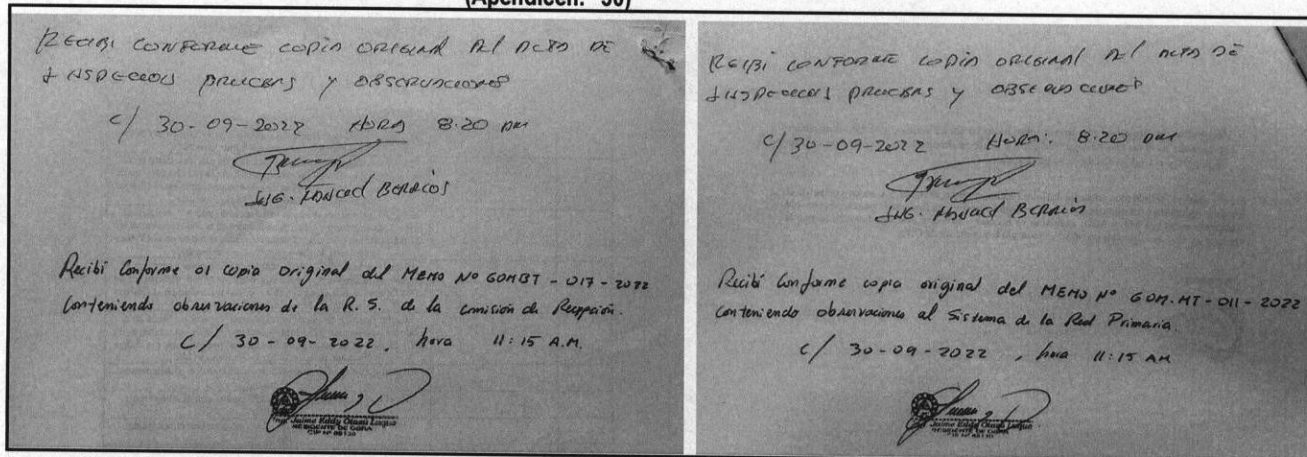 (Apéndice n.° 50)
RECIBI CONFORME COPIA ORIGINAL DEL ACTA DE
INSPECCION PRUEBAS Y OBSERVACIONES
C/ 30-09-2022 HORA 8:20 AM
ING. BERRIOS
Recibí Conforme 01 copia original del MEMO Nº GOMBT - 017 - 2022
Conteniendo observaciones de la R. S. de la comisión de Recepción.
C/ 30-09-2022, hora 11:15 A.M.
Ing. Jaime Eddy Luque
RESIDENTE DE OBRA
RECIBI CONFORME COPIA ORIGINAL DEL ACTA DE
INSPECCION PRUEBAS Y OBSERVACIONES
C/ 30-09-2022 HORA: 8:20 AM
ING. BERRIOS
Recibí Conforme copia original del MEMO Nº GOM.MT-011-2022
Conteniendo observaciones al Sistema de la Red Primaria.
C/ 30-09-2022, hora 11:15 AM
Jaime Eddy Luque
RESIDENTE DE OBRA